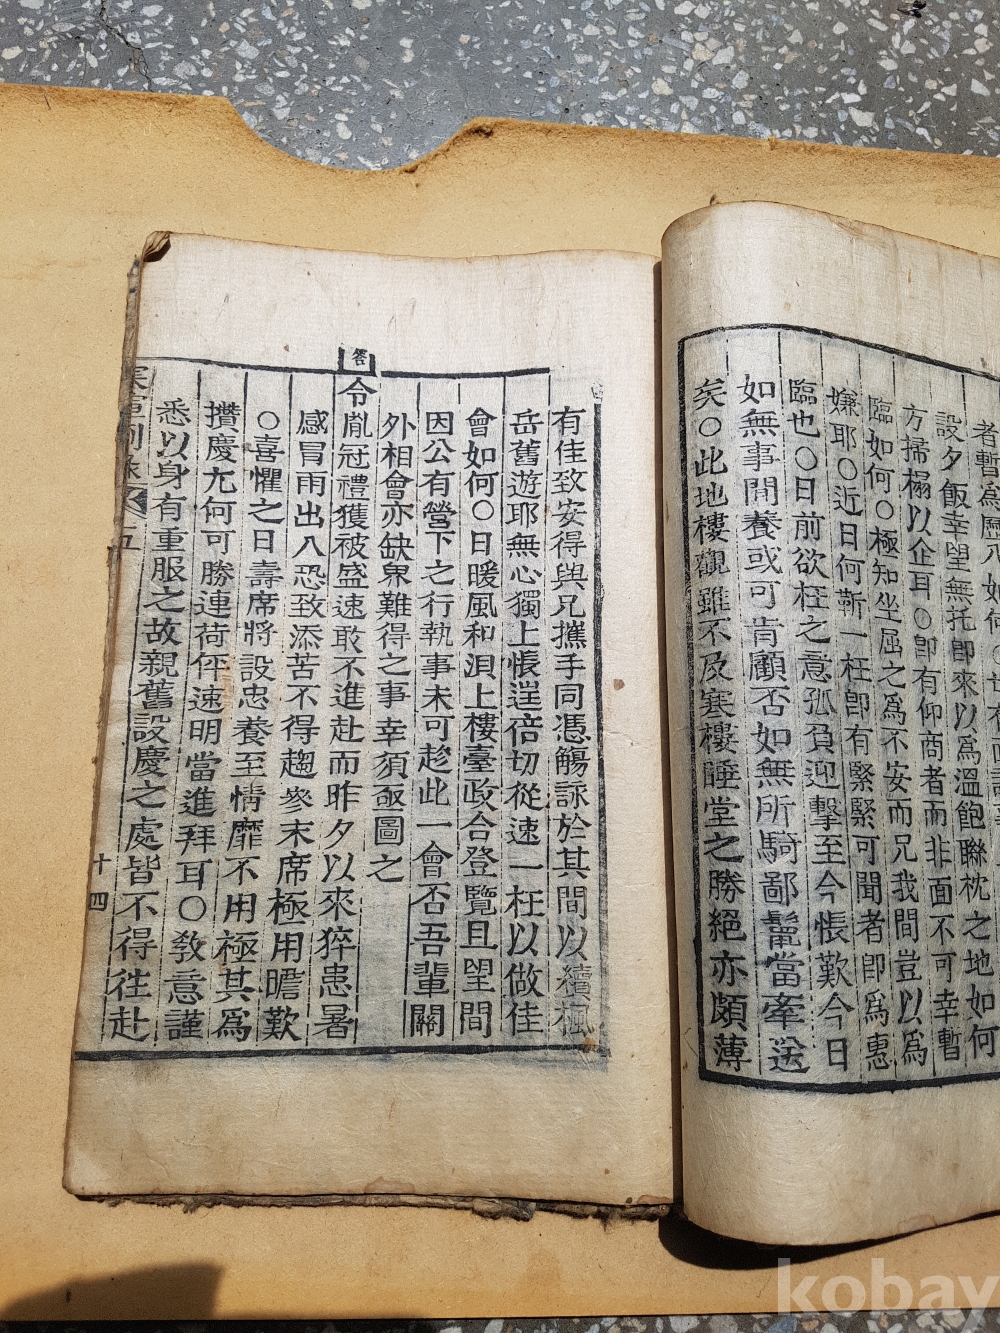 者暫爲歷
設夕飯幸望無托卽來以爲溫飽聯枕之地如何
方掃榻以企耳○卽有仰商者而非面不可幸暫
臨如何○極知坐屈之爲不安而兄我間豈以爲
嫌耶○近日何靳一枉卽有緊緊可聞者卽爲惠
臨也○日前欲枉之意孤負迎擊至今悵歎今日
如無事閒養或可肯顧否如無所騎鄙鬣當牽送
矣○此地樓觀雖不及寒樓睡堂之勝絕亦頗薄
有佳致安得與兄攜手同憑觴詠於其間以續楓
岳舊遊耶無心獨上悵逞倍切從速一枉以做佳
會如何○日暖風和浿上樓臺政合登覽且望間
因公有營下之行執事未可趁此一會否吾輩關
外相會亦缺界難得之事幸須亟圖之
答
令胤冠禮獲被盛速敢不進赴而昨夕以來猝患暑
感冒雨出入恐致添苦不得趨參末席極用瞻歎
○喜懼之日壽席將設忠養至情靡不用極其爲
攢慶尤何可勝連荷伻速明當進拜耳○敎意謹
悉以身有重服之故親舊設慶之處皆不得往赴
五
十四
kobay